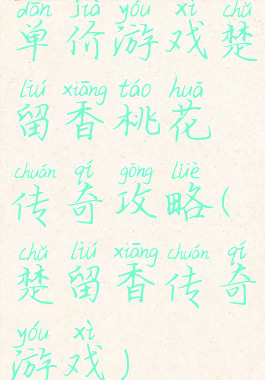 dān jià yóu xì chǔ
单价游戏楚
liú xiāng táo huā
留香桃花
chuán qí gōng lüè
传奇攻略(
chǔ liú xiāng chuán qí
楚留香传奇
yóu xì
游戏)